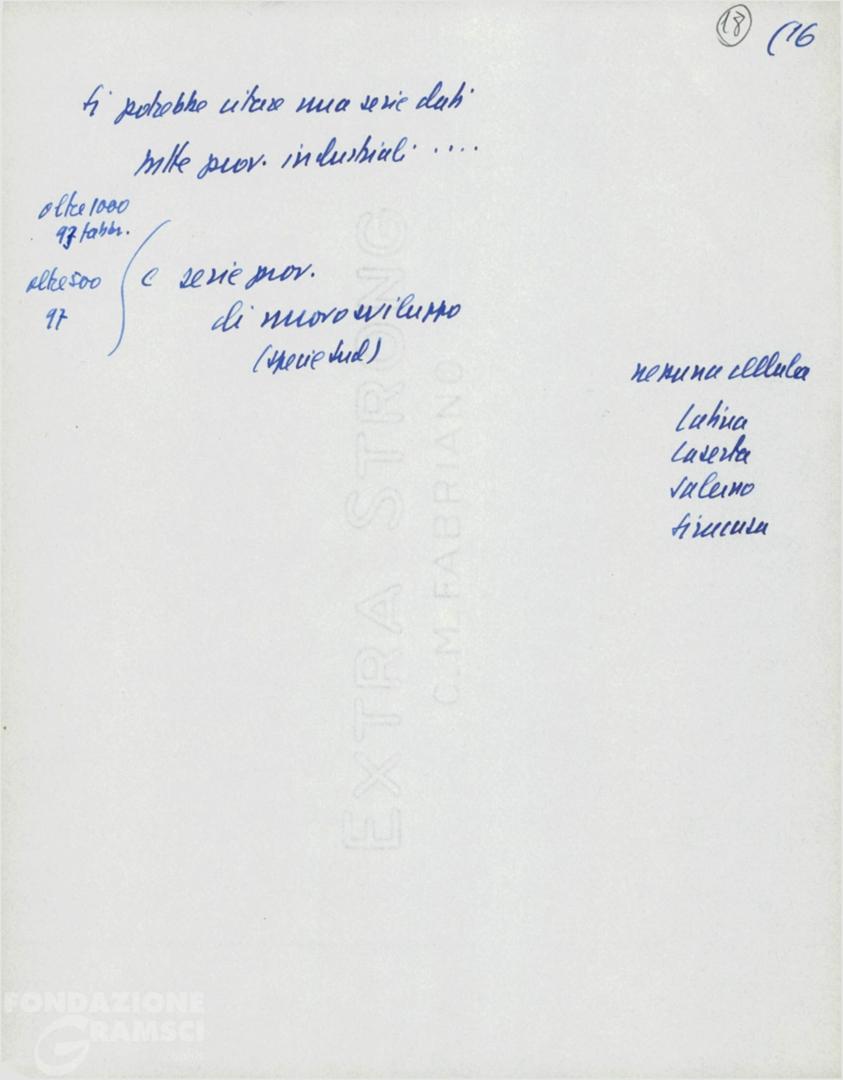 18 (16
Si potrebbe citare una serie dati
tutte prov. industriali ....
oltre 1000
97 fabbr.
oltre 500
97
e serie prov.
di nuovo sviluppo
(specie Sud)
nessuna cellula
Latina
Caserta
Salerno
Siracusa
EXTRA STRONG
C.M. FABRIANO
FONDAZIONE
GRAMSCI